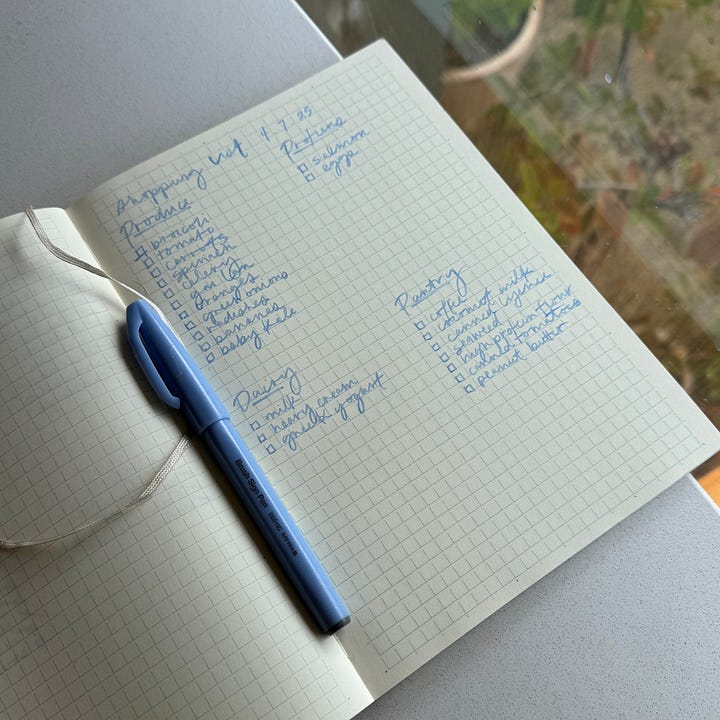 Shopping List 4.7.25
Produce
broccoli
tomato
carrots
spinach
celery
gai lan
oranges
green onions
radishes
bananas
baby kale
Dairy
milk
heavy cream
greek yogurt
Proteins
salmon
eggs
Pantry
coffee
coconut milk
canned
seaweed
high protein
canned tomatoes
peanut butter
Brush Sign Pen